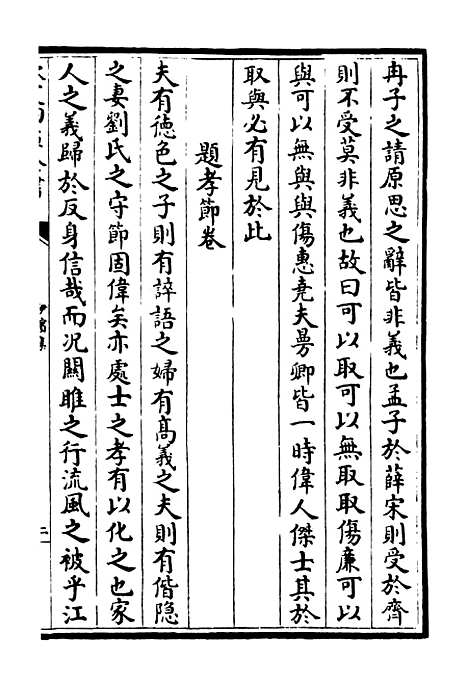 冉子之請原思之辭皆非義也孟子於薛宋則受於齊
則不受莫非義也故曰可以取可以無取取傷廉可以
與可以無與與傷惠堯夫曼卿皆一時偉人傑士其於
取與必有見於此
題孝節卷
夫有徳色之子則有誶語之婦有髙義之夫則有偕隠
之妻劉氏之守節固偉矣亦處士之孝有以化之也家
人之義歸於反身信哉而況闗雎之行流風之被乎江
二